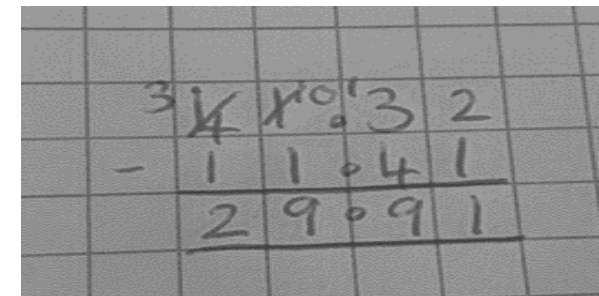 3 4 1 10 1 . 3 2
- 1 1 . 4 1
2 9 . 9 1